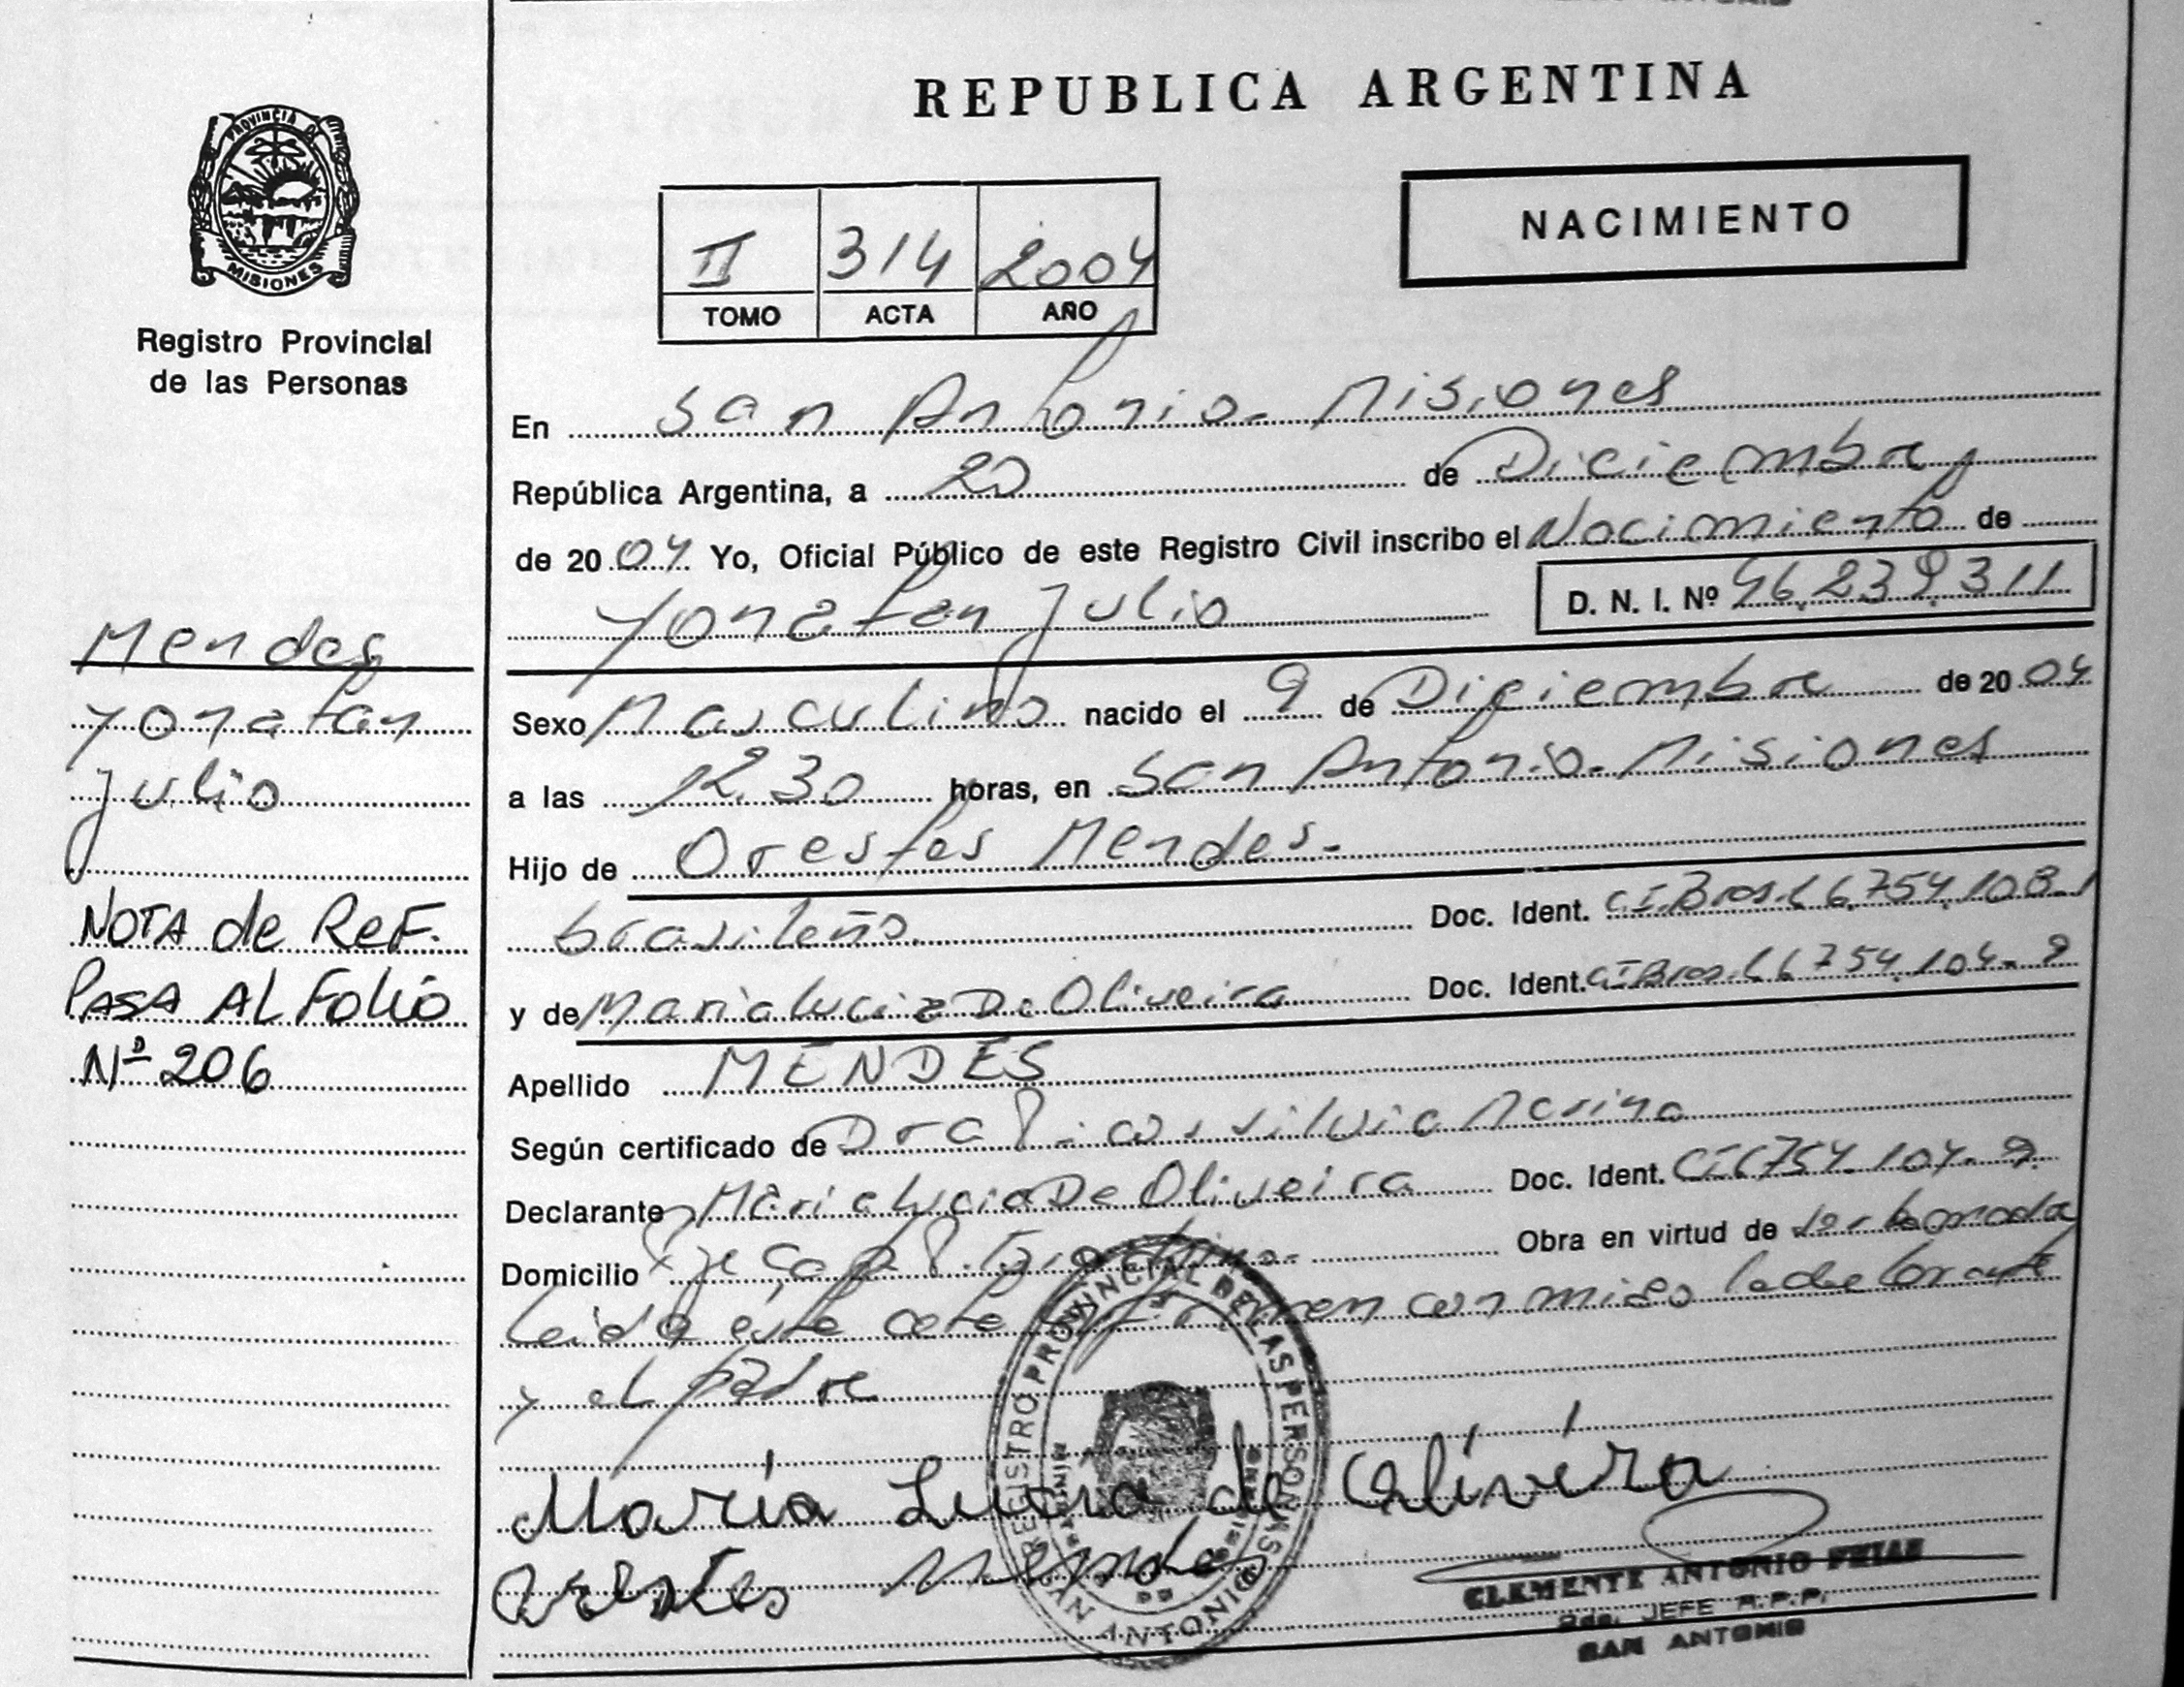 PROVINCIA DE
MISIONES
Registro Provincial
de las Personas
Mendes
Yonatan
Julio
NOTA de ReF.
PASA AL Folio
Nº 206
REPUBLICA ARGENTINA
II 314 2004
TOMO ACTA AÑO
NACIMIENTO
En San Antonio - Misiones
República Argentina, a 20 de Diciembre
de 2004 Yo, Oficial Público de este Registro Civil inscribo el Nacimiento de
Yonatan Julio D. N. I. Nº 46.239.311
Sexo Masculino nacido el 9 de Diciembre de 2004
a las 12.30 horas, en San Antonio - Misiones
Hijo de Orestes Mendes.-
brasileño Doc. Ident. C.I.Brasil 6.754.108-1
y de Maria Lucia De Oliveira Doc. Ident. CIBrasil 6754.104-9
Apellido MENDES
Según certificado de Dra Silvia
Declarante Maria Lucia De Oliveira Doc. Ident. CI6754.104-9
Domicilio Obra en virtud de
Leida este acta la firman conmigo la declarante
y el padre
María Lucia de Olivéira
Orestes Mendes
REGISTRO PROVINCIAL DE LAS PERSONAS
SAN ANTONIO
CLEMENTE ANTONIO FRIAS
2do. JEFE R.P.P.
SAN ANTONIO